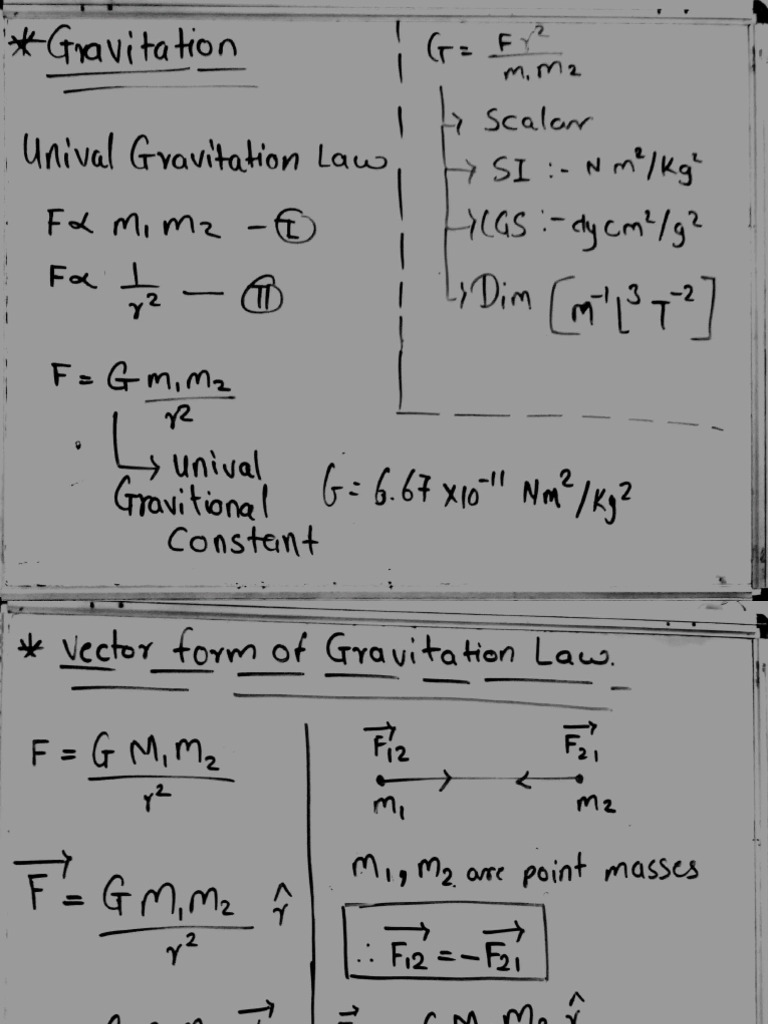 * Gravitation
Unival Gravitation Law
F∝ m₁ m₂ - Ⓘ
F∝ 1/r² — Ⓘⓘ
F = G m₁m₂/r²
→ unival
Gravitional
Constant
G = Fr²/m₁m₂
→ Scalar
→ SI :- N m²/Kg²
→ CGS :- dy cm²/g²
→ Dim [m⁻¹ L³ T⁻²]
G = 6.67 ×10⁻¹¹ Nm²/Kg²
* Vector form of Gravitation Law.
F = G M₁M₂/r²
F⃗ = G M₁M₂/r² r̂
F⃗₁₂ F⃗₂₁
m₁ m₂
m₁, m₂ are point masses
∴ F⃗₁₂ = -F⃗₂₁